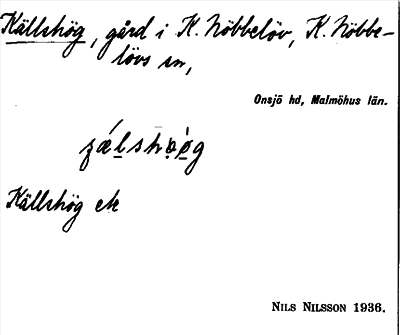 Källshög, gård i K. Nöbbelöv, K. Nöbbe-
lövs sn,
Onsjö hd, Malmöhus län.
Källshög ek
NILS NILSSON 1936.